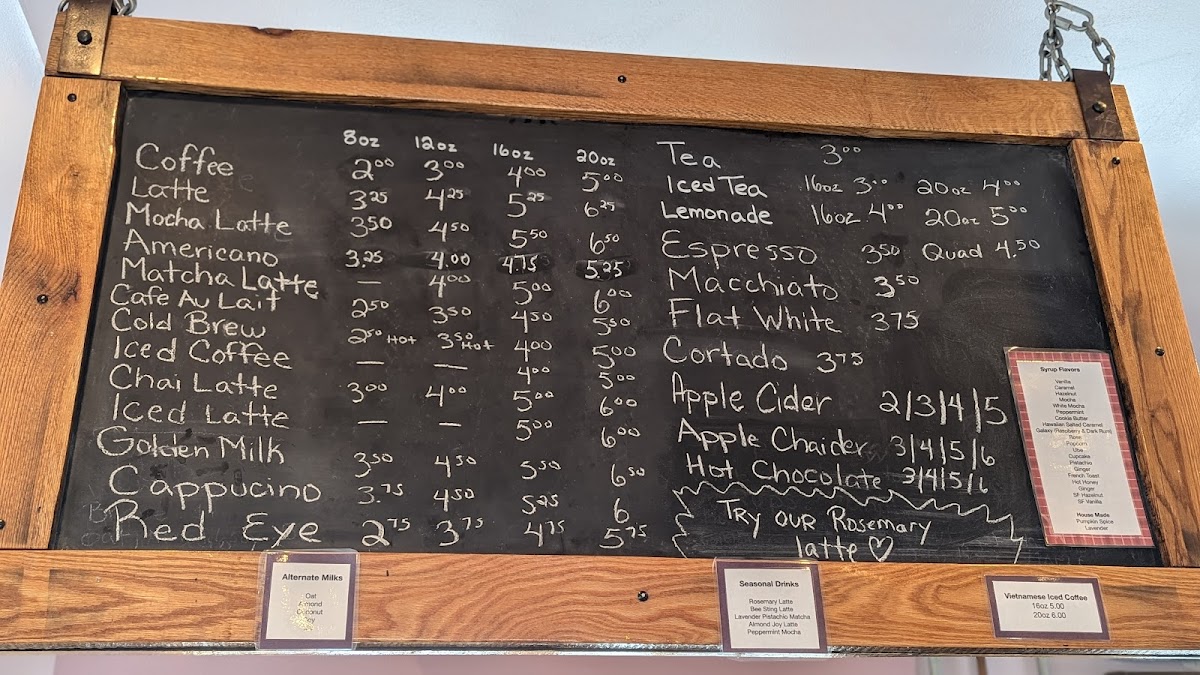 8oz 12oz 16oz 20oz
Coffee 2.00 3.00 4.00 5.00
Latte 3.25 4.25 5.25 6.25
Mocha Latte 3.50 4.50 5.50 6.50
Americano 3.25 4.00 4.75 5.25
Matcha Latte — 4.00 5.00 6.00
Cafe Au Lait 2.50 3.50 4.50 5.50
Cold Brew 2.50 Hot 3.50 Hot 4.00 5.00
Iced Coffee — — 4.00 5.00
Chai Latte 3.00 4.00 5.00 6.00
Iced Latte — 5.00 6.00
Golden Milk 3.50 4.50 5.50 6.50
Cappucino 3.75 4.50 5.25 6
Red Eye 2.75 3.75 4.75 5.75
Tea 3.00
Iced Tea 16oz 3.00 20oz 4.00
Lemonade 16oz 4.00 20oz 5.00
Espresso 3.50 Quad 4.50
Macchiato 3.50
Flat White 3.75
Cortado 3.75
Apple Cider 2/3/4/5
Apple Chaider 3/4/5/6
Hot Chocolate 3/4/5/6
Try our Rosemary
latte ♡
Syrup Flavors
Vanilla
Caramel
Hazelnut
Mocha
White Mocha
Peppermint
Cookie Butter
Hawaiian Salted Caramel
Galaxy (Raspberry & Dark Rum)
Rose
Popcorn
Ube
Cupcake
Pistachio
Ginger
French Toast
Hot Honey
Ginger
SF Hazelnut
SF Vanilla
House Made
Pumpkin Spice
Lavender
Alternate Milks
Oat
Almond
Coconut
Soy
Seasonal Drinks
Rosemary Latte
Bee Sting Latte
Lavender Pistachio Matcha
Almond Joy Latte
Peppermint Mocha
Vietnamese Iced Coffee
16oz 5.00
20oz 6.00